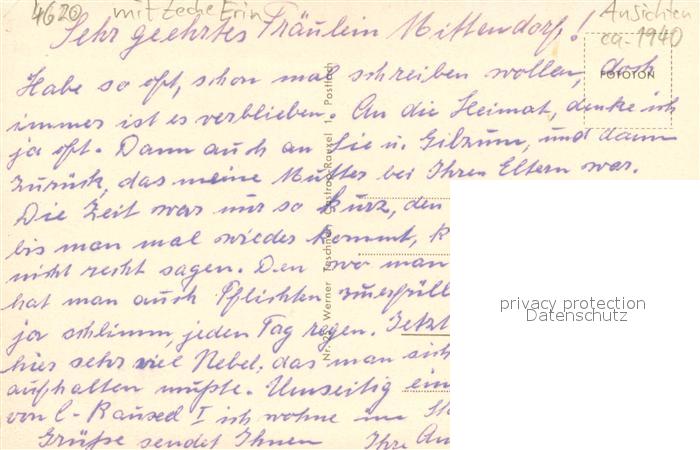 4620 mit Zeche Erin
Ansichten
ca. 1940
Sehr geehrtes Fräulein Mittendorf!
Habe so oft, schon mal schreiben wollen, doch
FOTOTON
immer ist es verblieben. An die Heimat, denke ich
ja oft. Dann auch an Sie u. Gilzum, und dann
zurück, das meine Mutter bei Ihren Eltern war.
Die Zeit war nur so kurz, den
bis man mal wieder kommt, k
nicht recht sagen. Den wo man
hat man auch Pflichten zuerfüll
ja schlimm, jeden Tag regen. Jetzt
hier sehr viel Nebel, das man sich
aufhalten mußte. Umseitig ein
von C-Rauxel I ich wohne im St
Grüße sendet Ihnen Ihre An
Nr. 250 Werner Taschner Castrop-Rauxel 1 Postfach
privacy protection
Datenschutz